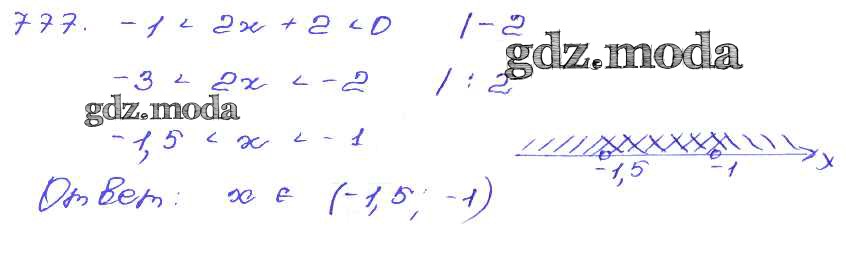 777. -1 < 2x + 2 < 0 | - 2
gdz.moda
-3 < 2x < -2 | : 2
gdz.moda
-1,5 < x < -1
-1,5 -1 x
Ответ: x ∈ (-1,5; -1)